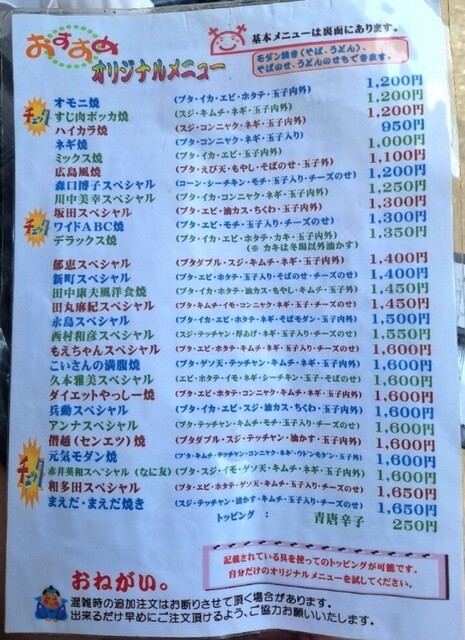 おすすめ
オリジナルメニュー
基本メニューは裏面にあります。
モダン焼き(そば、うどん)、
そばのせ、うどんのせもできます。
オモニ焼 (ブタ・イカ・エビ・ホタテ・玉子内外) 1,200円
チェック
すじ肉ポッカ焼 (スジ・コンニャク・ネギ・玉子内外) 1,200円
ハイカラ焼 (スジ・コンニャク・ネギ・玉子入り) 950円
ネギ焼 1,000円
ミックス焼 (ブタ・イカ・エビ・玉子内外) 1,100円
広島風焼 (ブタ・えび天・もやし・そばのせ・玉子外) 1,200円
森口博子スペシャル (コーン・シーチキン・モチ・玉子入り・チーズのせ) 1,250円
川中美幸スペシャル (ブタ・イカ・コンニャク・ネギ・玉子内外) 1,300円
坂田スペシャル (ブタ・エビ・油カス・ちくわ・玉子内外) 1,300円
チェック
ワイドABC焼 (ブタ・エビ・モチ・玉子入り・チーズのせ) 1,350円
デラックス焼 (ブタ・イカ・エビ・ホタテ・カキ・玉子内外)
(※ カキは冬場以外油かす)
郁恵スペシャル (ブタダブル・スジ・キムチ・ネギ・玉子内外) 1,400円
新町スペシャル (ブタ・エビ・ホタテ・玉子入り・そばのせ・チーズのせ) 1,400円
田中康夫風洋食焼 (ブタ・イカ・ホタテ・油カス・もやし・キムチ・玉子内外) 1,450円
田丸麻紀スペシャル (ブタ・キムチ・イモ・コンニャク・ネギ・玉子入り・チーズのせ) 1,450円
永島スペシャル (ブタ・イカ・エビ・ホタテ・ネギ・そばモダン・玉子内外) 1,500円
西村和彦スペシャル (スジ・テッチャン・厚あげ・ネギ・玉子入り・チーズのせ) 1,550円
もえちゃんスペシャル (ブタ・エビ・ホタテ・モチ・キムチ・ネギ・玉子入り・チーズのせ) 1,600円
こいさんの満腹焼 (ブタ・ゲソ天・テッチャン・キムチ・ネギ・玉子内外) 1,600円
久本雅美スペシャル (エビ・ホタテ・イモ・ネギ・シーチキン・玉子・そばのせ) 1,600円
ダイエットやっしー焼 (ブタ・エビ・ホタテ・コンニャク・キムチ・ネギ・玉子内外) 1,600円
兵動スペシャル (ブタ・イカ・エビ・スジ・油カス・ちくわ・玉子内外) 1,600円
アンナスペシャル (ブタ・テッチャン・キムチ・モチ・ネギ・玉子入り・チーズのせ) 1,600円
僭越(センエツ)焼 (ブタダブル・スジ・テッチャン・油かす・玉子内外) 1,600円
チェック
元気モダン焼 (ブタ・キムチ・テッチャン・コンニャク・ネギ・ウドンモダン・玉子内外) 1,600円
赤井英和スペシャル(なに友) (ブタ・スジ・イモ・ゲソ天・キムチ・ネギ・玉子内外) 1,600円
和多田スペシャル (ブタ・エビ・ホタテ・ゲソ天・キムチ・玉子入り・チーズのせ) 1,650円
まえだ・まえだ焼き (スジ・テッチャン・油かす・キムチ・玉子入り・チーズのせ) 1,650円
トッピング : 青唐辛子 250円
記載されている具を使ってのトッピングが可能です。
自分だけのオリジナルメニューを試してください。
おねがい。
混雑時の追加注文はお断りさせて頂く場合があります。
出来るだけ早めにご注文頂けるよう、ご協力お願いいたします。